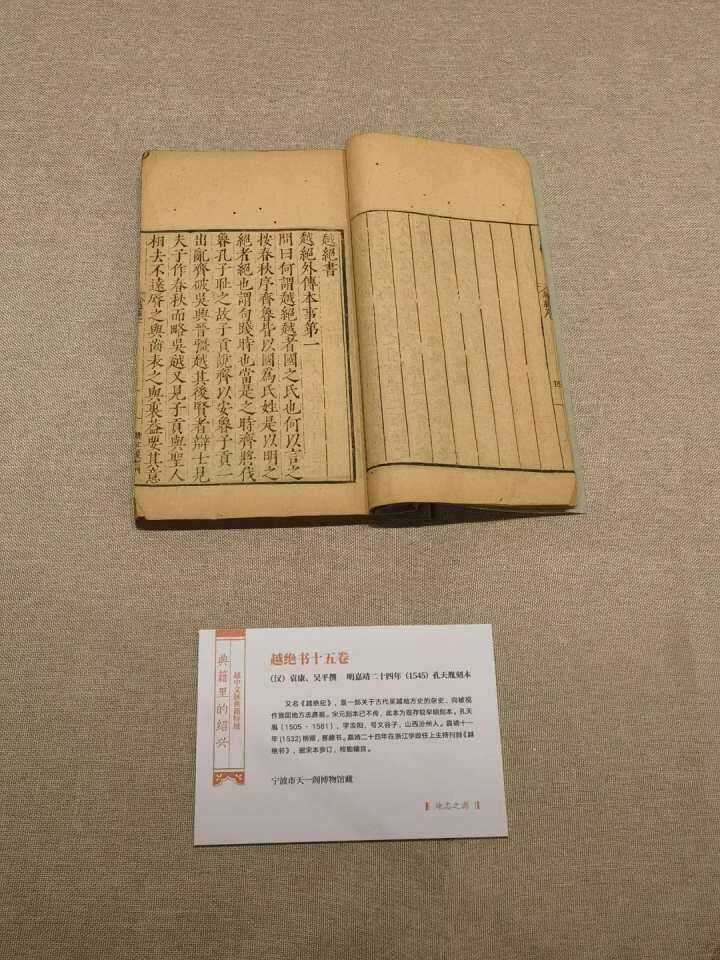 越絕書
越絕外傳本事第一
問曰何謂越絕越者國之氏也何以言之
按春秋序齊魯皆以國為氏姓是以明之
絕者絕也謂句踐時也當是之時齊將伐
魯孔子恥之故子貢說齊以安魯子貢一
出亂齊破吳興晉彊越其後賢者辯士見
夫子作春秋而略吳越又見子貢與聖人
相去不遠脣之與齒表之與裏蓋要其意
典籍里的绍兴
越中文脉典籍特展
越绝书十五卷
(汉) 袁康、吴平撰 明嘉靖二十四年 (1545) 孔天胤刻本
又名《越绝纪》，是一部关于古代吴越地方史的杂史，向被视
作我国地方志鼻祖。宋元刻本已不传，此本为现存较早明刻本。孔天
胤 (1505 - 1581) ，字汝阳，号文谷子，山西汾州人。嘉靖十一
年 (1532) 榜眼，喜藏书。嘉靖二十四年在浙江学政任上主持刊刻《越
绝书》，据宋本参订，校勘精良。
宁波市天一阁博物馆藏
咏志之源